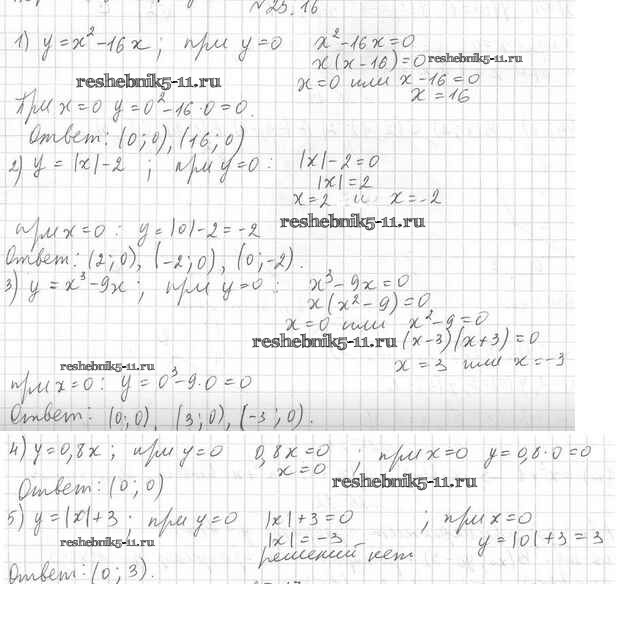 № 25.16
1) y = x² - 16x ; при y = 0 x² - 16x = 0
x(x - 16) = 0 reshebnik5-11.ru
reshebnik5-11.ru x = 0 или x - 16 = 0
x = 16
При x = 0 y = 0² - 16·0 = 0.
Ответ: (0; 0), (16; 0)
2) y = |x| - 2 ; при y = 0 : |x| - 2 = 0
|x| = 2
x = 2 и x = -2
reshebnik5-11.ru
при x = 0 : y = |0| - 2 = -2
Ответ: (2; 0), (-2; 0), (0; -2).
3) y = x³ - 9x ; при y = 0 : x³ - 9x = 0
x(x² - 9) = 0
x = 0 или x² - 9 = 0
reshebnik5-11.ru (x - 3)(x + 3) = 0
reshebnik5-11.ru x = 3 или x = -3
при x = 0 : y = 0³ - 9·0 = 0
Ответ: (0; 0), (3; 0), (-3; 0).
4) y = 0,8x ; при y = 0 0,8x = 0 ; при x = 0 y = 0,8·0 = 0
x = 0
reshebnik5-11.ru
Ответ: (0; 0)
5) y = |x| + 3 ; при y = 0 |x| + 3 = 0 ; при x = 0
reshebnik5-11.ru |x| = -3 y = |0| + 3 = 3
решений нет
Ответ: (0; 3).